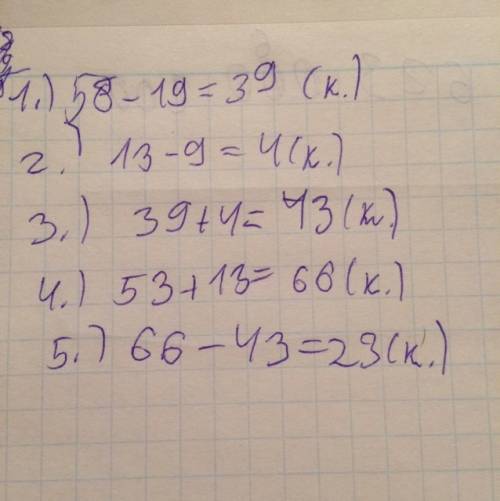 1.) 58 - 19 = 39 (к.)
2.) 13 - 9 = 4 (к.)
3.) 39 + 4 = 43 (к.)
4.) 53 + 13 = 66 (к.)
5.) 66 - 43 = 23 (к.)